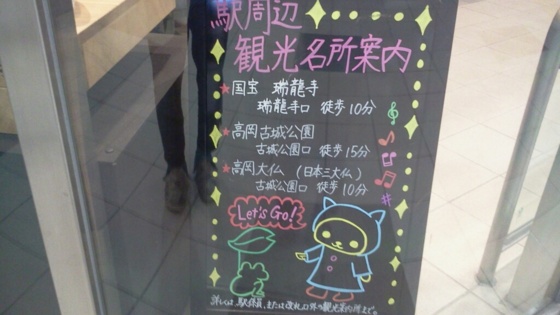 駅周辺
観光名所案内
★国宝 瑞龍寺
瑞龍寺口 徒歩10分
★高岡古城公園
古城公園口 徒歩15分
★高岡大仏 (日本三大仏)
古城公園口 徒歩10分
Let's Go!
詳しくは、駅係員、または改札口外の観光案内所まで。